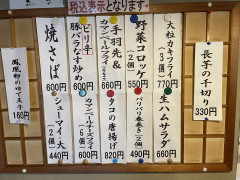 税込表示となります。
長芋の千切り
330円
大粒カキフライ
(3ヶ) 770円
生ハムサラダ
660円
野菜コロッケ
(2ヶ) 550円
パリパリ春巻き
(2ヶ) 490円
手羽先&
カマンベールフライ
660円
タコの唐揚げ
820円
ピリ辛
豚バラなす炒め
600円
カマンベールチーズフライ
(6個) 600円
焼さば
600円
シューマイ(大)
(2個) 440円
鳳凰卵のゆで玉子
160円